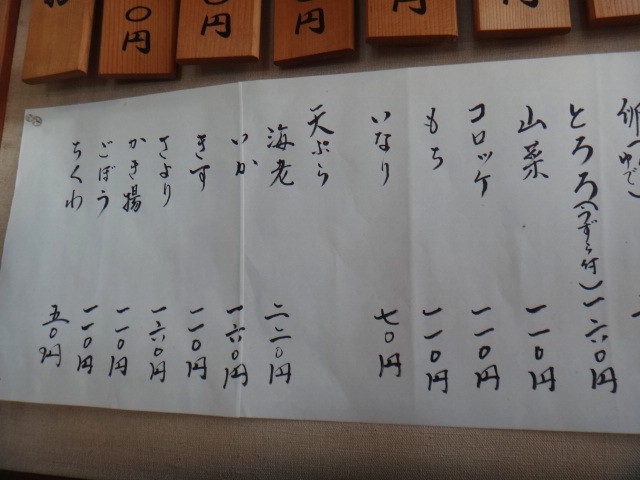 円
円
円
〇円
〇円
〇円
(ゆで)
とろろ(うずら付)一六〇円
山菜 一一〇円
コロッケ 一一〇円
もち 一一〇円
いなり 七〇円
天ぷら
海老 二二〇円
いか 一六〇円
きす 一一〇円
さより 一六〇円
かき揚 一一〇円
ごぼう 一一〇円
ちくわ 五〇円